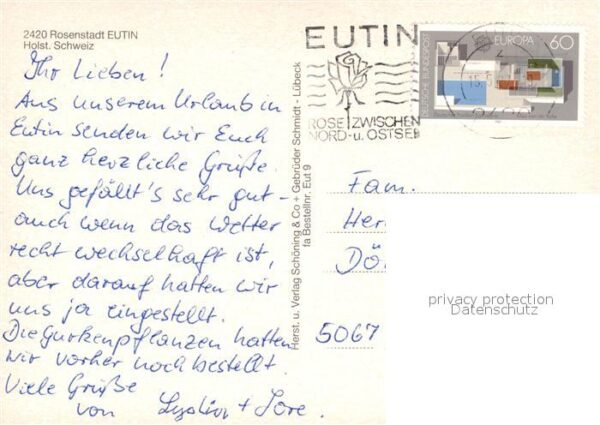 2420 Rosenstadt EUTIN
Holst. Schweiz
Ihr Lieben!
Aus unserem Urlaub in
Eutin senden wir Euch
ganz herzliche Grüße.
Uns gefällt's sehr gut -
auch wenn das Wetter
recht wechselhaft ist,
aber darauf hatten wir
uns ja eingestellt.
Die Gurkenpflanzen hatten
wir vorher noch bestellt.
Viele Grüße
von + Lore.
Herst. u. Verlag Schöning & Co + Gebrüder Schmidt - Lübeck
fa Bestellnr. Eut 9
EUTIN
ROSE ZWISCHEN
NORD- u. OSTSEE
DEUTSCHE BUNDESPOST
EUROPA 60
Fam.
Her
Dö
5067
privacy protection
Datenschutz